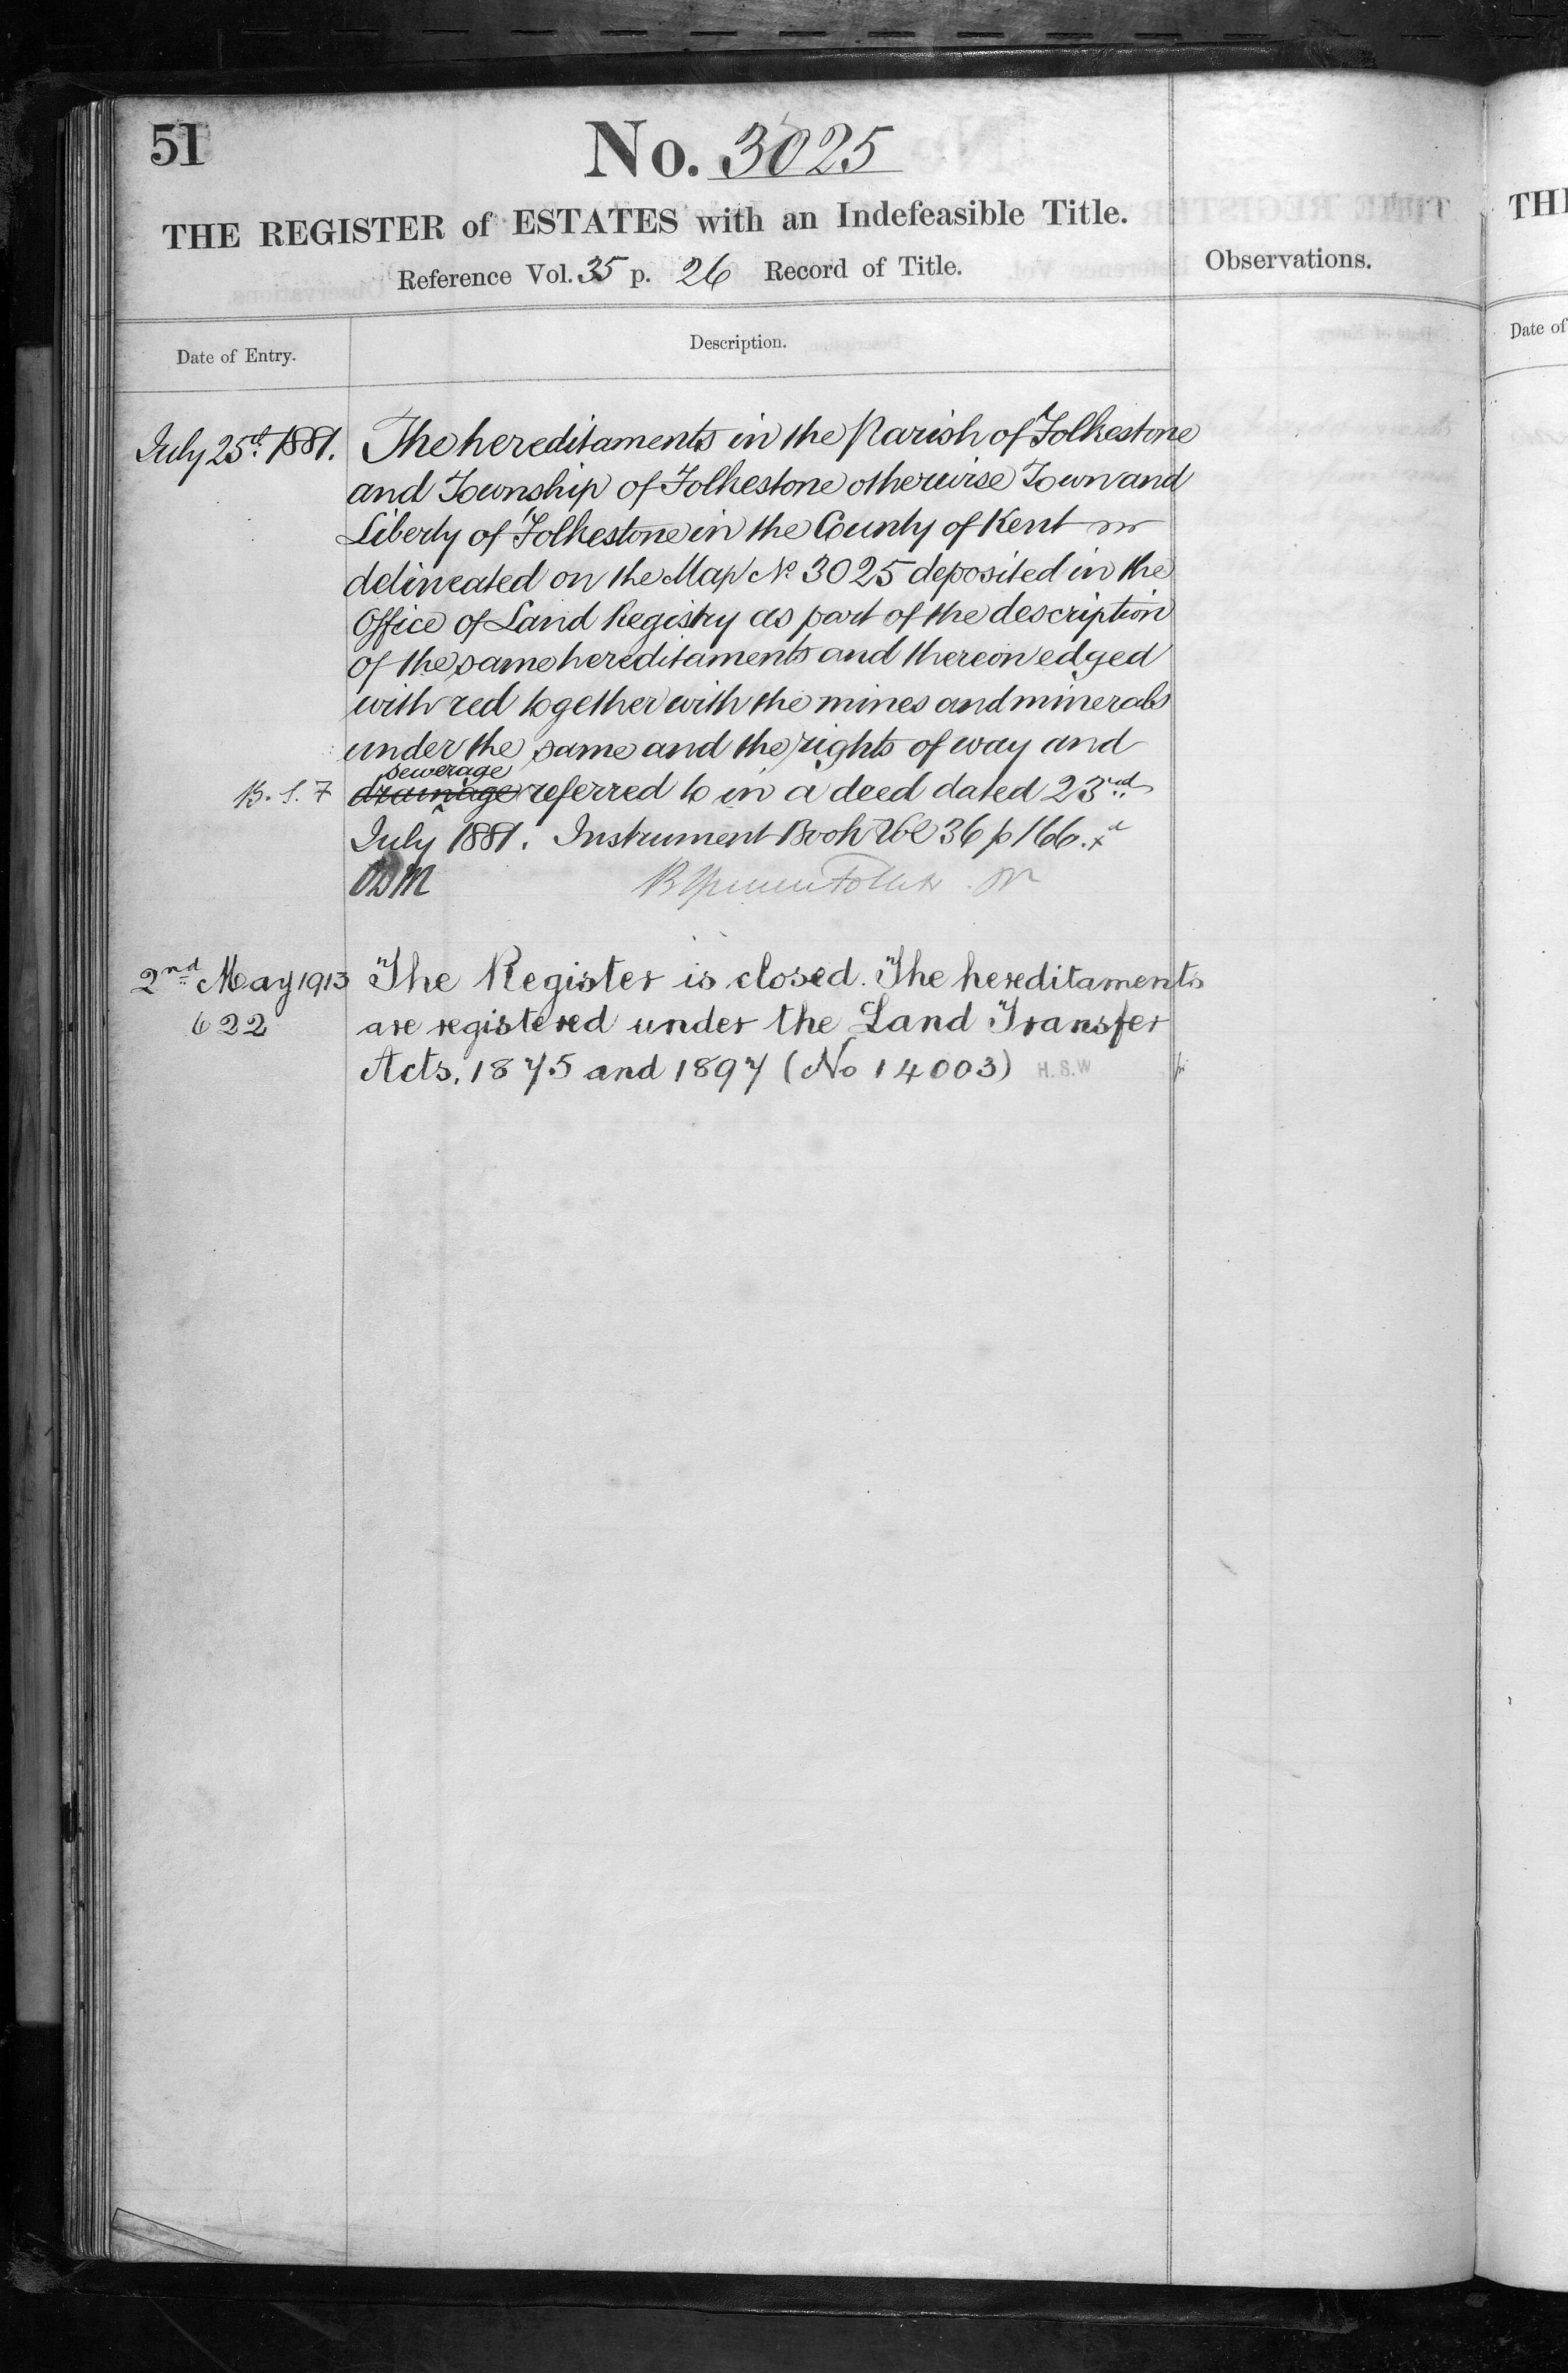 51
No. 3025
THE REGISTER of ESTATES with an Indefeasible Title.
Reference Vol. 35 p. 26 Record of Title.
Observations.
Date of Entry.
Description.
July 25th 1881. The hereditaments in the Parish of Folkestone
and Township of Folkestone otherwise Town and
Liberty of Folkestone in the County of Kent
delineated on the Map No. 3025 deposited in the
Office of Land Registry as part of the description
of the same hereditaments and thereon edged
with red together with the mines and minerals
under the same and the rights of way and
sewerage
B. S. F drainage referred to in a deed dated 23rd
July 1881. Instrument Book Vol 36 p 166.
2nd May 1913 The Register is closed. The hereditaments
622 are registered under the Land Transfer
Acts, 1875 and 1897 (No 14003) H.S.W
THE
Date of